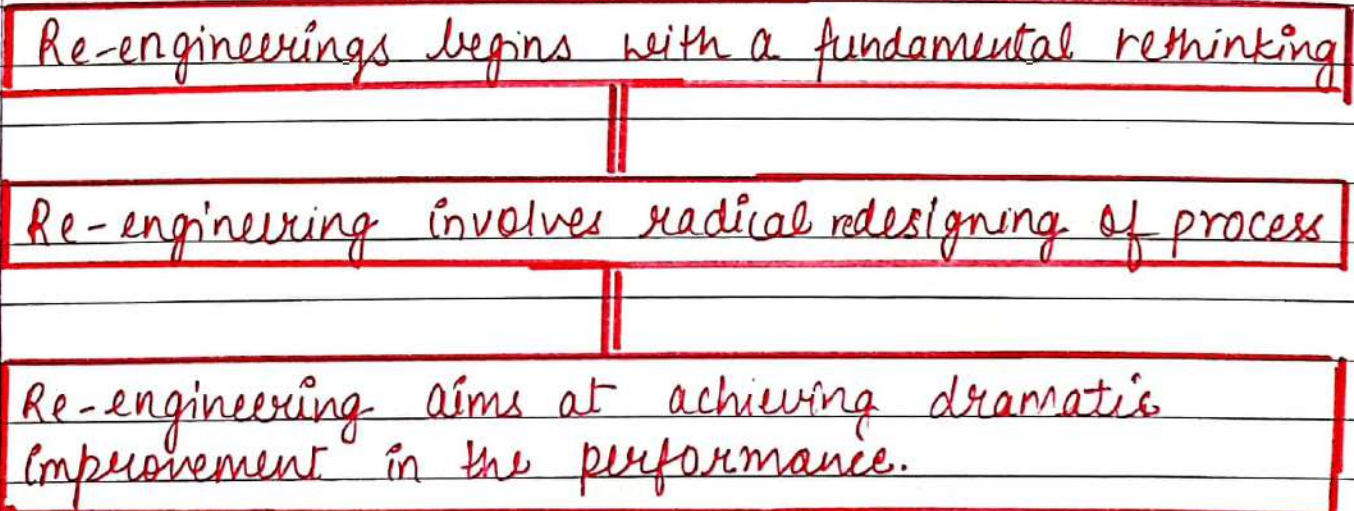 Re-engineerings begins with a fundamental rethinking
Re-engineering involves radical redesigning of process
Re-engineering aims at achieving dramatic
improvement in the performance.